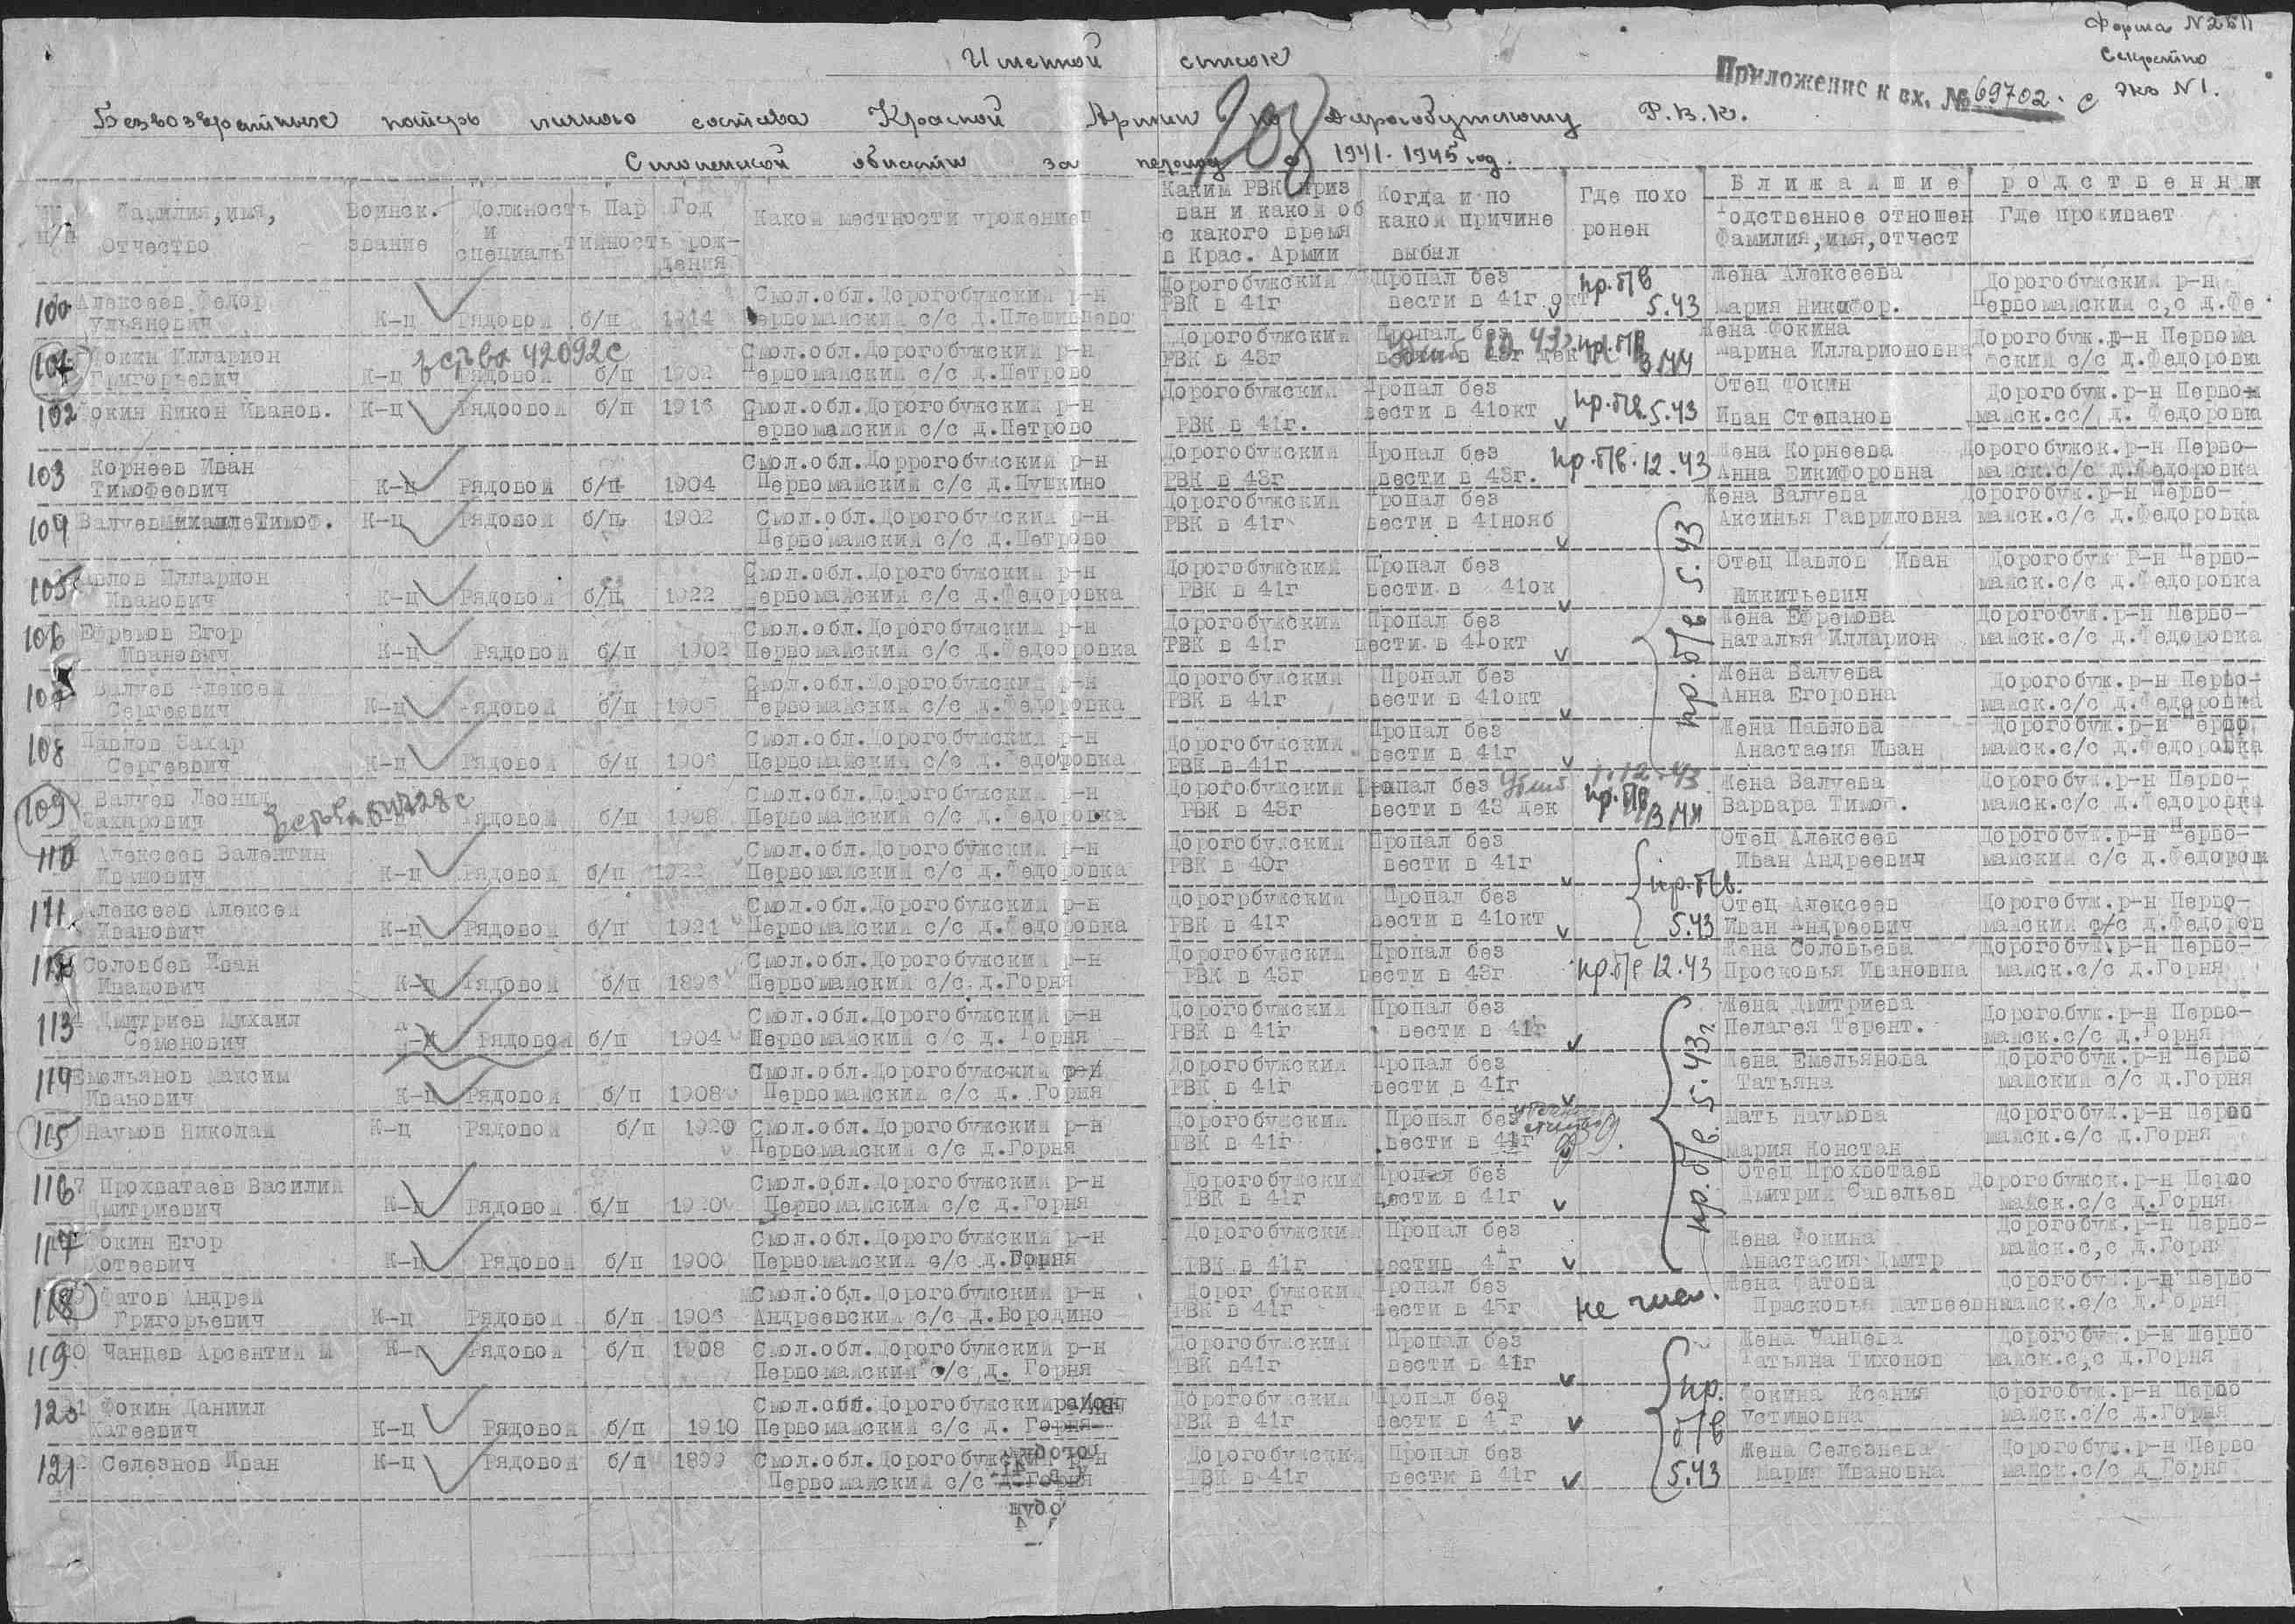 Форма N 2БП
Секретно
Экз N1.
Именной список
Приложение к вх. № 69702. с
Безвозвратных потерь личного состава Красной Армии по Дорогобужскому Р.В.К.
Смоленской области за период с 1941-1945 год.
208
Фамилия, имя, Отчество
Воинск. звание
Должность и специаль
Пар тийность
Год рож-дения
Какой местности уроженец
Каким РВК приз ван и какой об с какого время в Крас. Армии
Когда и по какой причине выбыл
Где похо ронен
Ближайшие родственники
Родственное отношен Фамилия,имя,отчест
Где проживает
100 Алексеев Федор Ульянович К-ц Рядовой б/п 1914 Смол.обл.Дорогобужский р-н Первомайский с/с д.Плешивцево Дорогобужский РВК в 41г Пропал без вести в 41г окт пр.б/в 5.43 Жена Алексеева Мария Никифор. Дорогобужский р-н Первомайский с,с д.Фе
101 Фокин Илларион Григорьевич К-ц Рядовой б/п 1902 Смол.обл.Дорогобужский р-н Первомайский с/с д.Петрово Дорогобужский РВК в 43г Пропал без пр.б/в Жена Фокина Марина Илларионовна Дорогобуж.р-н Первома йский с/с д.Федоровка
102 Фокин Никон Иванов. К-ц Рядоовой б/п 1916 Смол.обл.Дорогобужский р-н Первомайский с/с д.Петрово Дорогобужский РВК в 41г. Пропал без вести в 41окт пр.б/в. 5.43 Отец Фокин Иван Степанов Дорогобуж.р-н Первом майск.сс/ д. Федоровка
103 Корнеев Иван Тимофеевич К-ц Рядовой б/п 1904 Смол.обл.Доррогобужский р-н Первомайский с/с д.Пушкино Дорогобужский РВК в 43г Пропал без вести в 43г. пр.б/в. 12.43 Жена Корнеева Анна Никифоровна Дорогобужск.р-н Перво-майск.с/с д.Федоровка
104 Валуев Тимоф. К-ц Рядовой б/п 1902 Смол.обл.Дорогобужский р-н Первомайский с/с д.Петрово Дорогобужский РВК в 41г Пропал без вести в 41нояб Жена Валуева Аксинья Гавриловна Дорогобуж.р-н Перво-майск.с/с д.Федоровка
пр. б/в 5.43
105 Павлов Илларион Иванович К-ц Рядовой б/п 1922 Смол.обл.Дорогобужский р-н Первомайский с/с д.Федоровка Дорогобужский РВК в 41г Пропал без вести в 41ок Отец Павлов Иван Никитьевич Дорогобуж Р-н Перво-майск.с/с д.Федоровка
106 Ефремов Егор Иванович К-ц Рядовой б/п Смол.обл.Дорогобужский р-н Первомайский с/с д.Федооровка Дорогобужский РВК в 41г Пропал без вести в 41окт Жена Ефремова Наталья Илларион Дорогобуж.р-н Перво-майск.с/с д.Федоровка
107 Валуев Алексей Сергеевич К-ц Рядовой б/п 1905 Смол.обл.Дорогобужский р-н Первомайский с/с д.Федоровка Дорогобужский РВК в 41г Пропал без вести в 41окт Жена Валуева Анна Егоровна Дорогобуж.р-н Перво-майск.с/с д.Федоровка
108 Павлов Захар Сергеевич К-ц Рядовой б/п 1906 Смол.обл.Дорогобужский р-н Первомайский с/с д.Федоровка Дорогобужский РВК в 41г Пропал без вести в 41г Жена Павлова Анастасия Иван Дорогобуж.р-н Перво майск.с/с д.Федоровка
109 Валуев Леонид Захарович Рядовой б/п 1908 Смол.обл.Дорогобужский р-н Первомайский с/с д.Федоровка Дорогобужский РВК в 43г Пропал без вести в 43 дек Убит 1.12.43 пр.б/в Жена Валуева Варвара Тимоф. Дорогобуж.р-н Перво-майск.с/с д.Федоровка
110 Алексеев Валентин Иванович К-ц Рядовой б/п 1922 Смол.обл.Дорогобужский р-н Первомайский с/с д.Федоровка Дорогобужский РВК в 40г Пропал без вести в 41г Отец Алексеев Иван Андреевич Дорогобуж.р-н Перво-майский с/с д.Федоров
пр.б/в. 5.43
111. Алексеев Алексей Иванович К-ц Рядовой б/п 1921 Смол.обл.Дорогобужский р-н Первомайский с/с д.Федоровка Дорогрбужский РВК в 41г Пропал без вести в 41окт Отец Алексеев Иван Андреевич Дорогобуж.р-н Перво-майский с/с д.Федоров
112 Соловбев Иван Иванович К-ц Рядовой б/п 1896 Смол.обл.Дорогобужский р-н Первомайский с/с д.Горня Дорогобужский РВК в 43г Пропал без вести в 43г пр.б/в 12.43 Жена Соловьева Просковья Ивановна Дорогобуж.р-н Перво-майск.с/с д.Горня
113 Дмитриев Михаил Семенович К-ц Рядовой б/п 1904 Смол.обл.Дорогобужский р-н Первомайский с/с д. Горня Дорогобужский РВК в 41г Пропал без вести в 41г Жена Дмитриева Пелагея Терент. Дорогобуж.р-н Перво-майск.с/с д.Горня
пр. б/в. 5.43г
114 Емельянов Максим Иванович К-ц Рядовой б/п 1908 Смол.обл.Дорогобужский р-н Первомайский с/с д. Горня Дорогобужский РВК в 41г Пропал без вести в 41г Жена Емельянова Татьяна Дорогобуж.р-н Перво майский с/с д.Горня
115 Наумов Николай К-ц Рядовой б/п 1920 Смол.обл.Дорогобужский р-н Первомайский с/с д.Горня Дорогобужский РВК в 41г Пропал без вести в 41г Мать Наумова Мария Констан Дорогобуж.р-н Перво майск.с/с д.Горня
116 Прохватаев Василий Дмитриевич К-ц Рядовой б/п 1920 Смол.обл.Дорогобужский р-н Первомайский с/с д.Горня Дорогобужский РВК в 41г Пропал без вести в 41г Отец Прохвотаев Дмитрий Савельев Дорогобужск.р-н Перво майск.с/с д.Горня
117 Фокин Егор Фотеевич К-ц Рядовой б/п 1900 Смол.обл.Дорогобужский р-н Первомайский с/с д.Горня Дорогобужский РВК в 41г Пропал без вестив 41г Жена Фокина Анастасия Дмитр Дорогобуж.р-н Перво-майск.с,с д.Горня
118 Фатов Андрей Григорьевич К-ц Рядовой б/п 1906 Смол.обл.Дорогобужский р-н Андреевский с/с д.Бородино Дорог бужский РВК в 41г Пропал без вести в 45г не числ. Жена Фатова Прасковья Матвеевна майск.с/с д.Горня Дорогобуж.р-н Перво
119 Чанцев Арсентий М К-ц Рядовой б/п 1908 Смол.обл.Дорогобужский р-н Первомайский с/с д. Горня Дорогобужский РВК в41г Пропал без вести в 41г Жена Чанцева Татьяна Тихонов Дорогобуж.р-н Перво майск.с,с д.Горня
пр. б/в 5.43
120 Фокин Даниил Фатеевич К-ц Рядовой б/п 1910 Смол.обл.Дорогобужский район Первомайский с/с д. Горня Дорогобужский РВК в 41г Пропал без вести в 41г Фокина Ксения Устиновна Дорогобуж.р-н Перво майск.с/с д.Горня
121 Селезнов Иван К-ц Рядовой б/п 1899 Смол.обл.Дорогобужский р-н Первомайский с/с д.Горня Дорогобужский РВК в 41г Пропал без вести в 41г Жена Селезнева Мария Ивановна Дорогобуж.р-н Перво майск.с/с д Горня